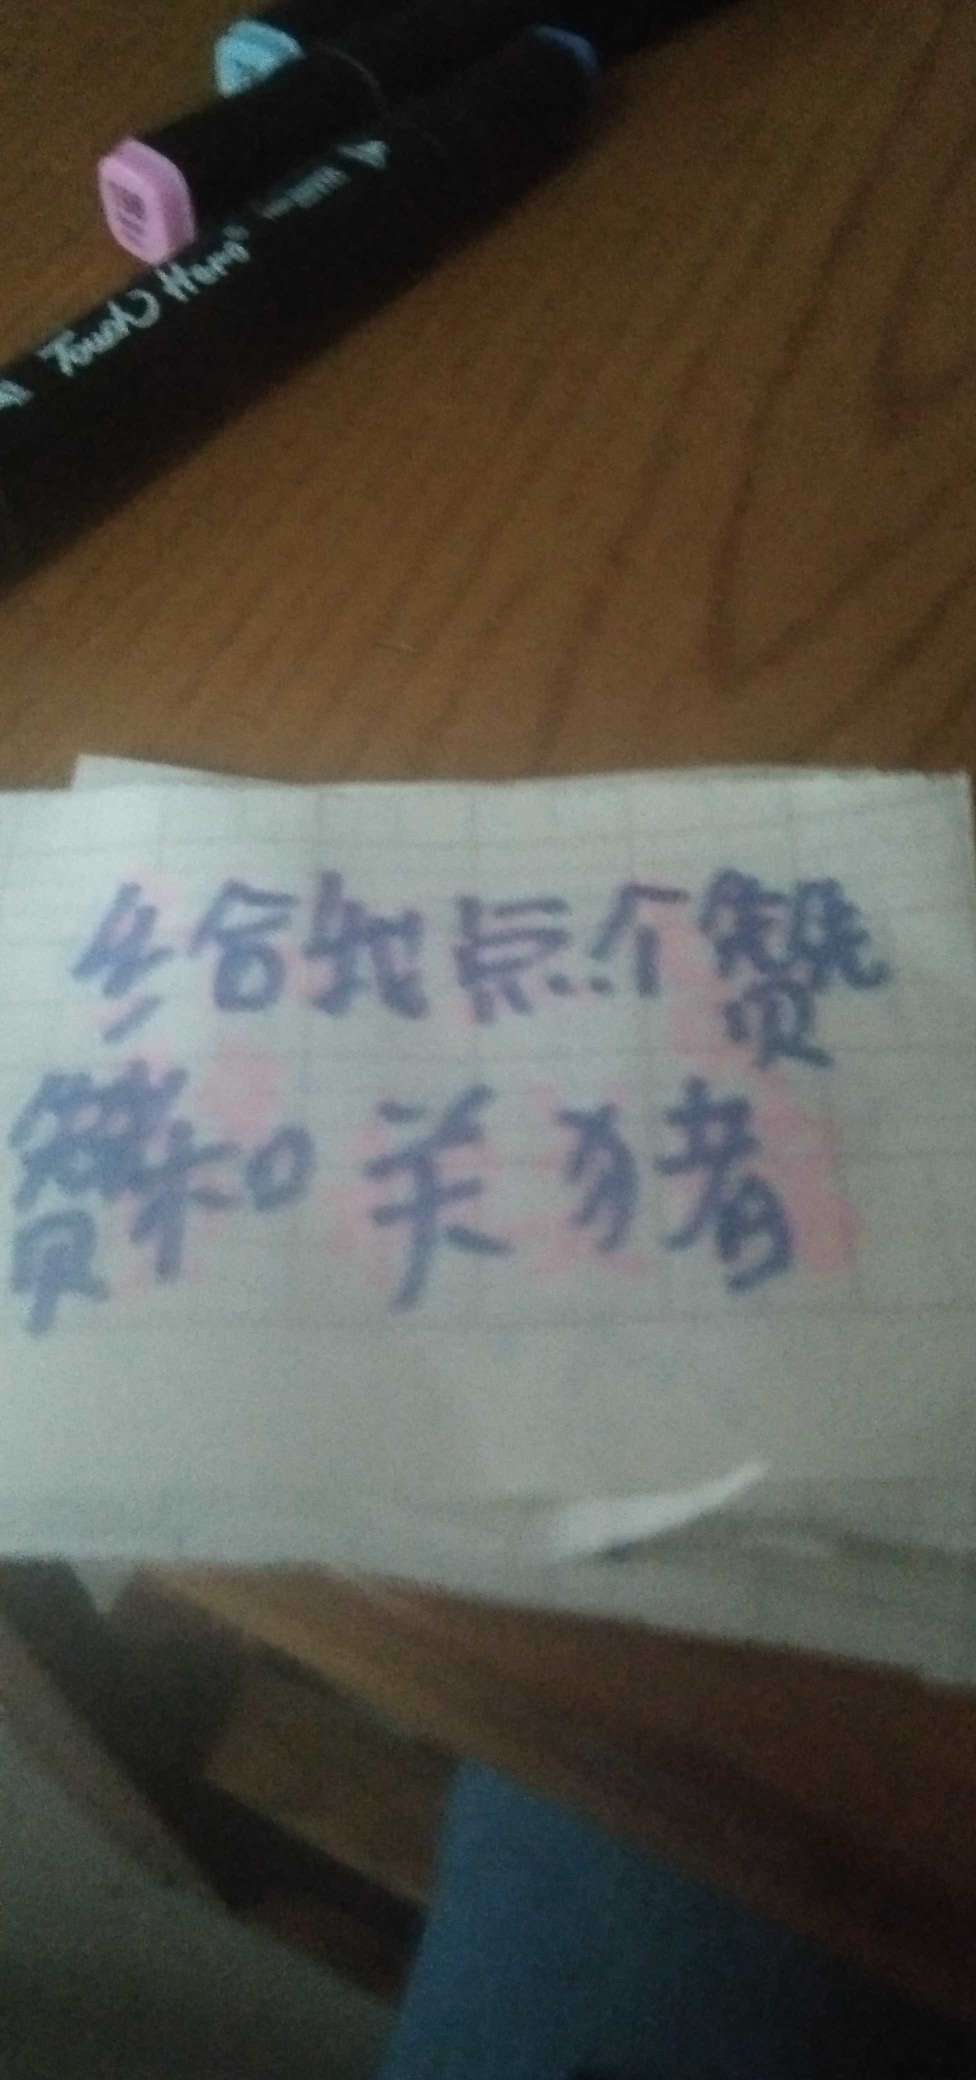 Touch Hero
给我点个赞
赞和关猪